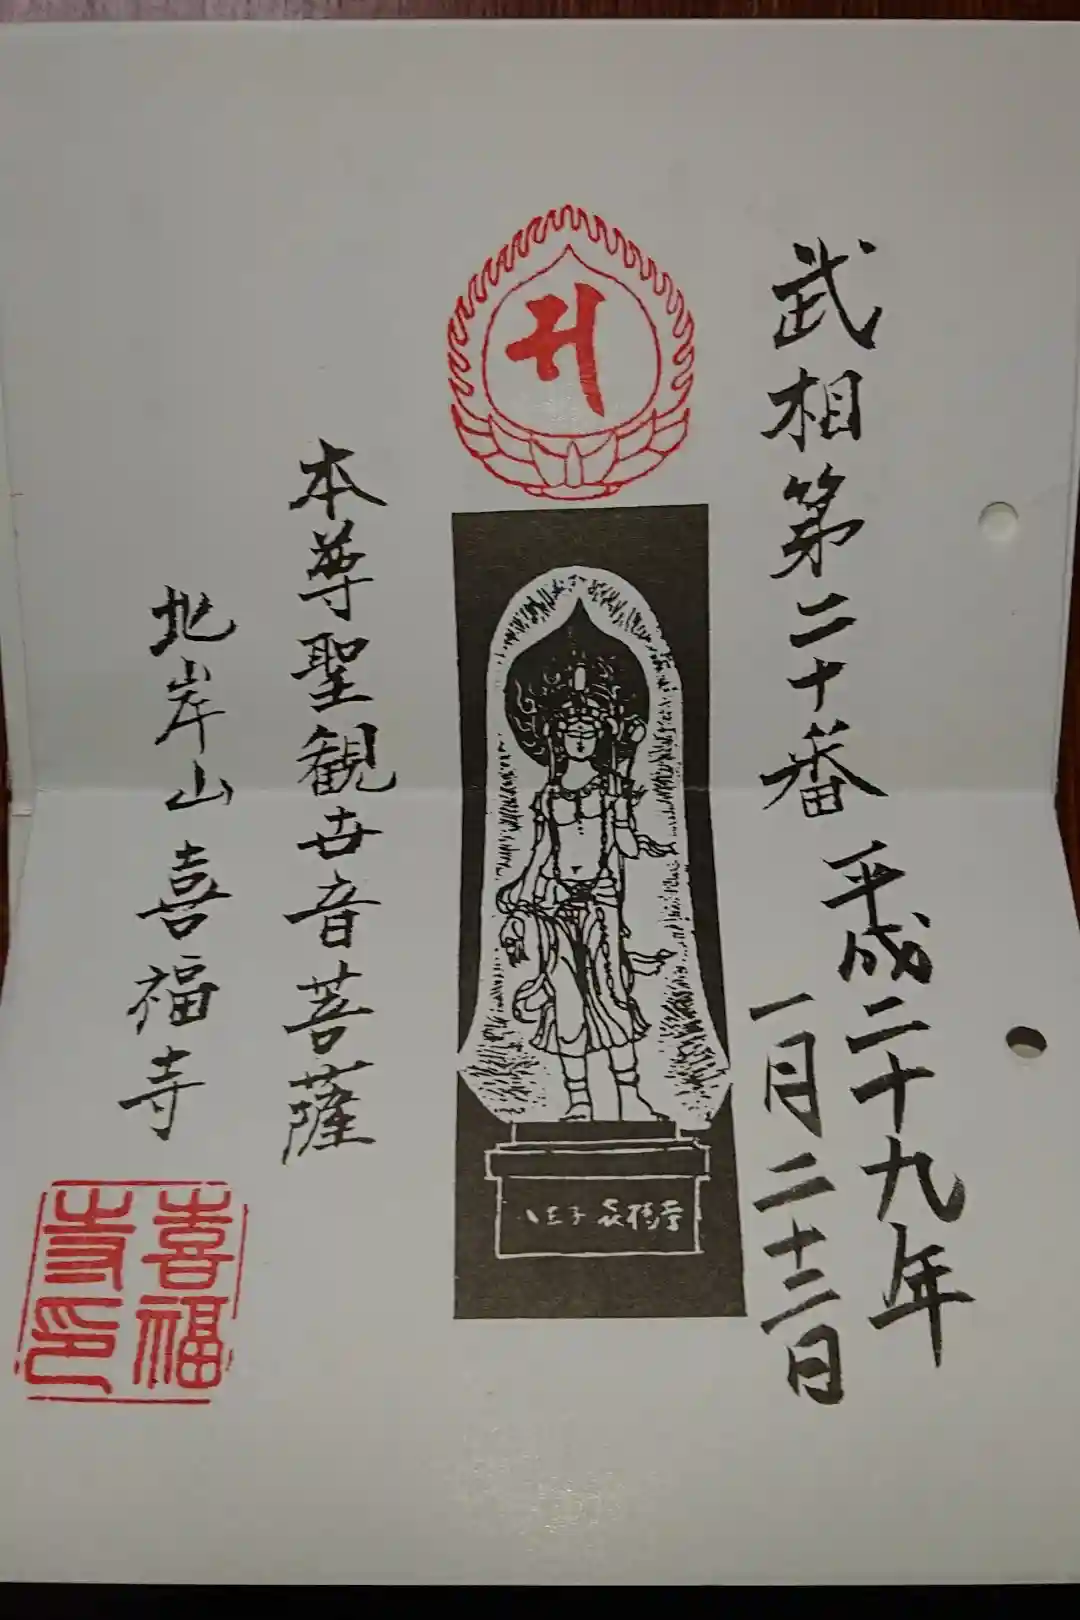 武相第二十番
平成二十九年
一月二十二日
サ
本尊聖観世音菩薩
八王子 喜福寺
地岸山 喜福寺
喜福
寺印